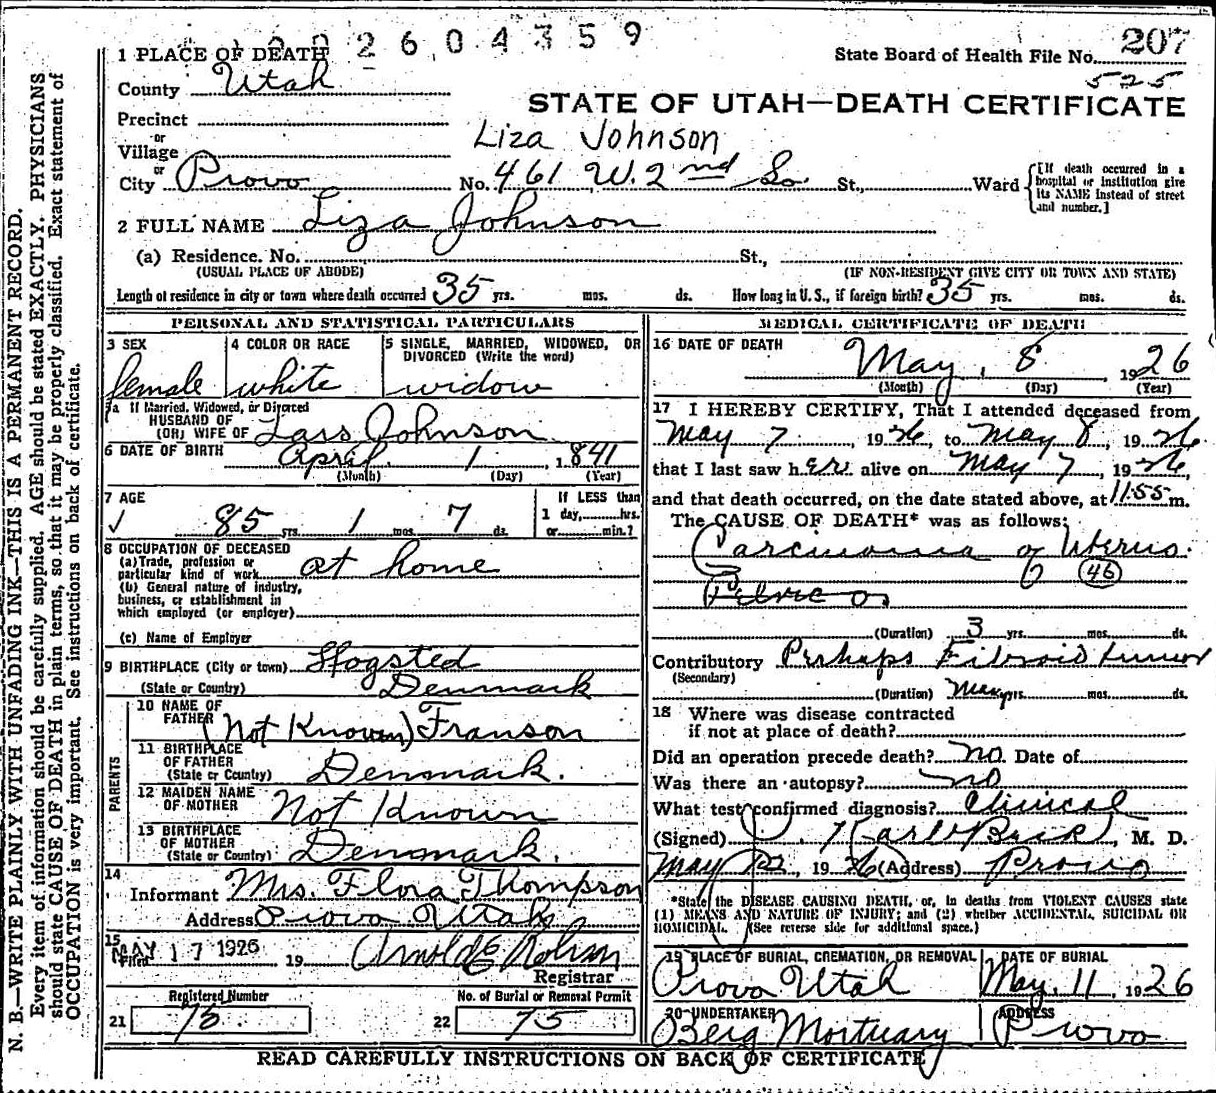 2604359
1 PLACE OF DEATH
State Board of Health File No. 207
525
County Utah
STATE OF UTAH—DEATH CERTIFICATE
Precinct
or
Village
Liza Johnson
or
City Provo No. 461 W. 2nd So. St., Ward
[If death occurred in a hospital or institution give its NAME instead of street and number.]
2 FULL NAME Liza Johnson
(a) Residence. No. St.,
(USUAL PLACE OF ABODE) (IF NON-RESIDENT GIVE CITY OR TOWN AND STATE)
Length of residence in city or town where death occurred 35 yrs. mos. ds. How long in U. S., if foreign birth? 35 yrs. mos. ds.
PERSONAL AND STATISTICAL PARTICULARS
3 SEX female
4 COLOR OR RACE white
5 SINGLE, MARRIED, WIDOWED, OR DIVORCED (Write the word) widow
5a If Married, Widowed, or Divorced
HUSBAND OF
(OR) WIFE OF Lars Johnson
6 DATE OF BIRTH April 1, 1841
(Month) (Day) (Year)
7 AGE 85 yrs. 1 mos. 7 ds.
If LESS than
1 day, hrs.
or min.?
8 OCCUPATION OF DECEASED
(a) Trade, profession or
particular kind of work at home
(b) General nature of industry,
business, or establishment in
which employed (or employer)
(c) Name of Employer
9 BIRTHPLACE (City or town) Hogsted
(State or Country) Denmark
PARENTS
10 NAME OF
FATHER (Not Known) Franson
11 BIRTHPLACE
OF FATHER
(State or Country) Denmark.
12 MAIDEN NAME
OF MOTHER Not Known
13 BIRTHPLACE
OF MOTHER
(State or Country) Denmark.
14
Informant Mrs. Flora Thompson
Address Provo Utah
15
Filed MAY 17 1926 19
Registrar
Registered Number No. of Burial or Removal Permit
21 75 22 75
MEDICAL CERTIFICATE OF DEATH
16 DATE OF DEATH
May, 8, 1926
(Month) (Day) (Year)
17 I HEREBY CERTIFY, That I attended deceased from
May 7, 1926, to May 8, 1926
that I last saw her alive on May 7, 1926,
and that death occurred, on the date stated above, at 11:55 m.
The CAUSE OF DEATH* was as follows:
Carcinoma of Uterus.
46
(Duration) 3 yrs. mos. ds.
Contributory Perhaps Fibroid tumor
(Secondary)
(Duration) Many yrs. mos. ds.
18 Where was disease contracted
if not at place of death?
Did an operation precede death? no. Date of
Was there an autopsy? no
What test confirmed diagnosis? Clinical
(Signed) J. Karl Beck, M. D.
May, 1926 (Address) Provo
*State the DISEASE CAUSING DEATH, or, in deaths from VIOLENT CAUSES state
(1) MEANS AND NATURE OF INJURY; and (2) whether ACCIDENTAL, SUICIDAL OR
HOMICIDAL. (See reverse side for additional space.)
19 PLACE OF BURIAL, CREMATION, OR REMOVAL
Provo Utah
DATE OF BURIAL
May. 11, 1926
20 UNDERTAKER
Berg Mortuary
ADDRESS
Provo
READ CAREFULLY INSTRUCTIONS ON BACK OF CERTIFICATE
N. B.—WRITE PLAINLY WITH UNFADING INK—THIS IS A PERMANENT RECORD.
Every item of information should be carefully supplied. AGE should be stated EXACTLY. PHYSICIANS
should state CAUSE OF DEATH in plain terms, so that it may be properly classified. Exact statement of
OCCUPATION is very important. See instructions on back of certificate.